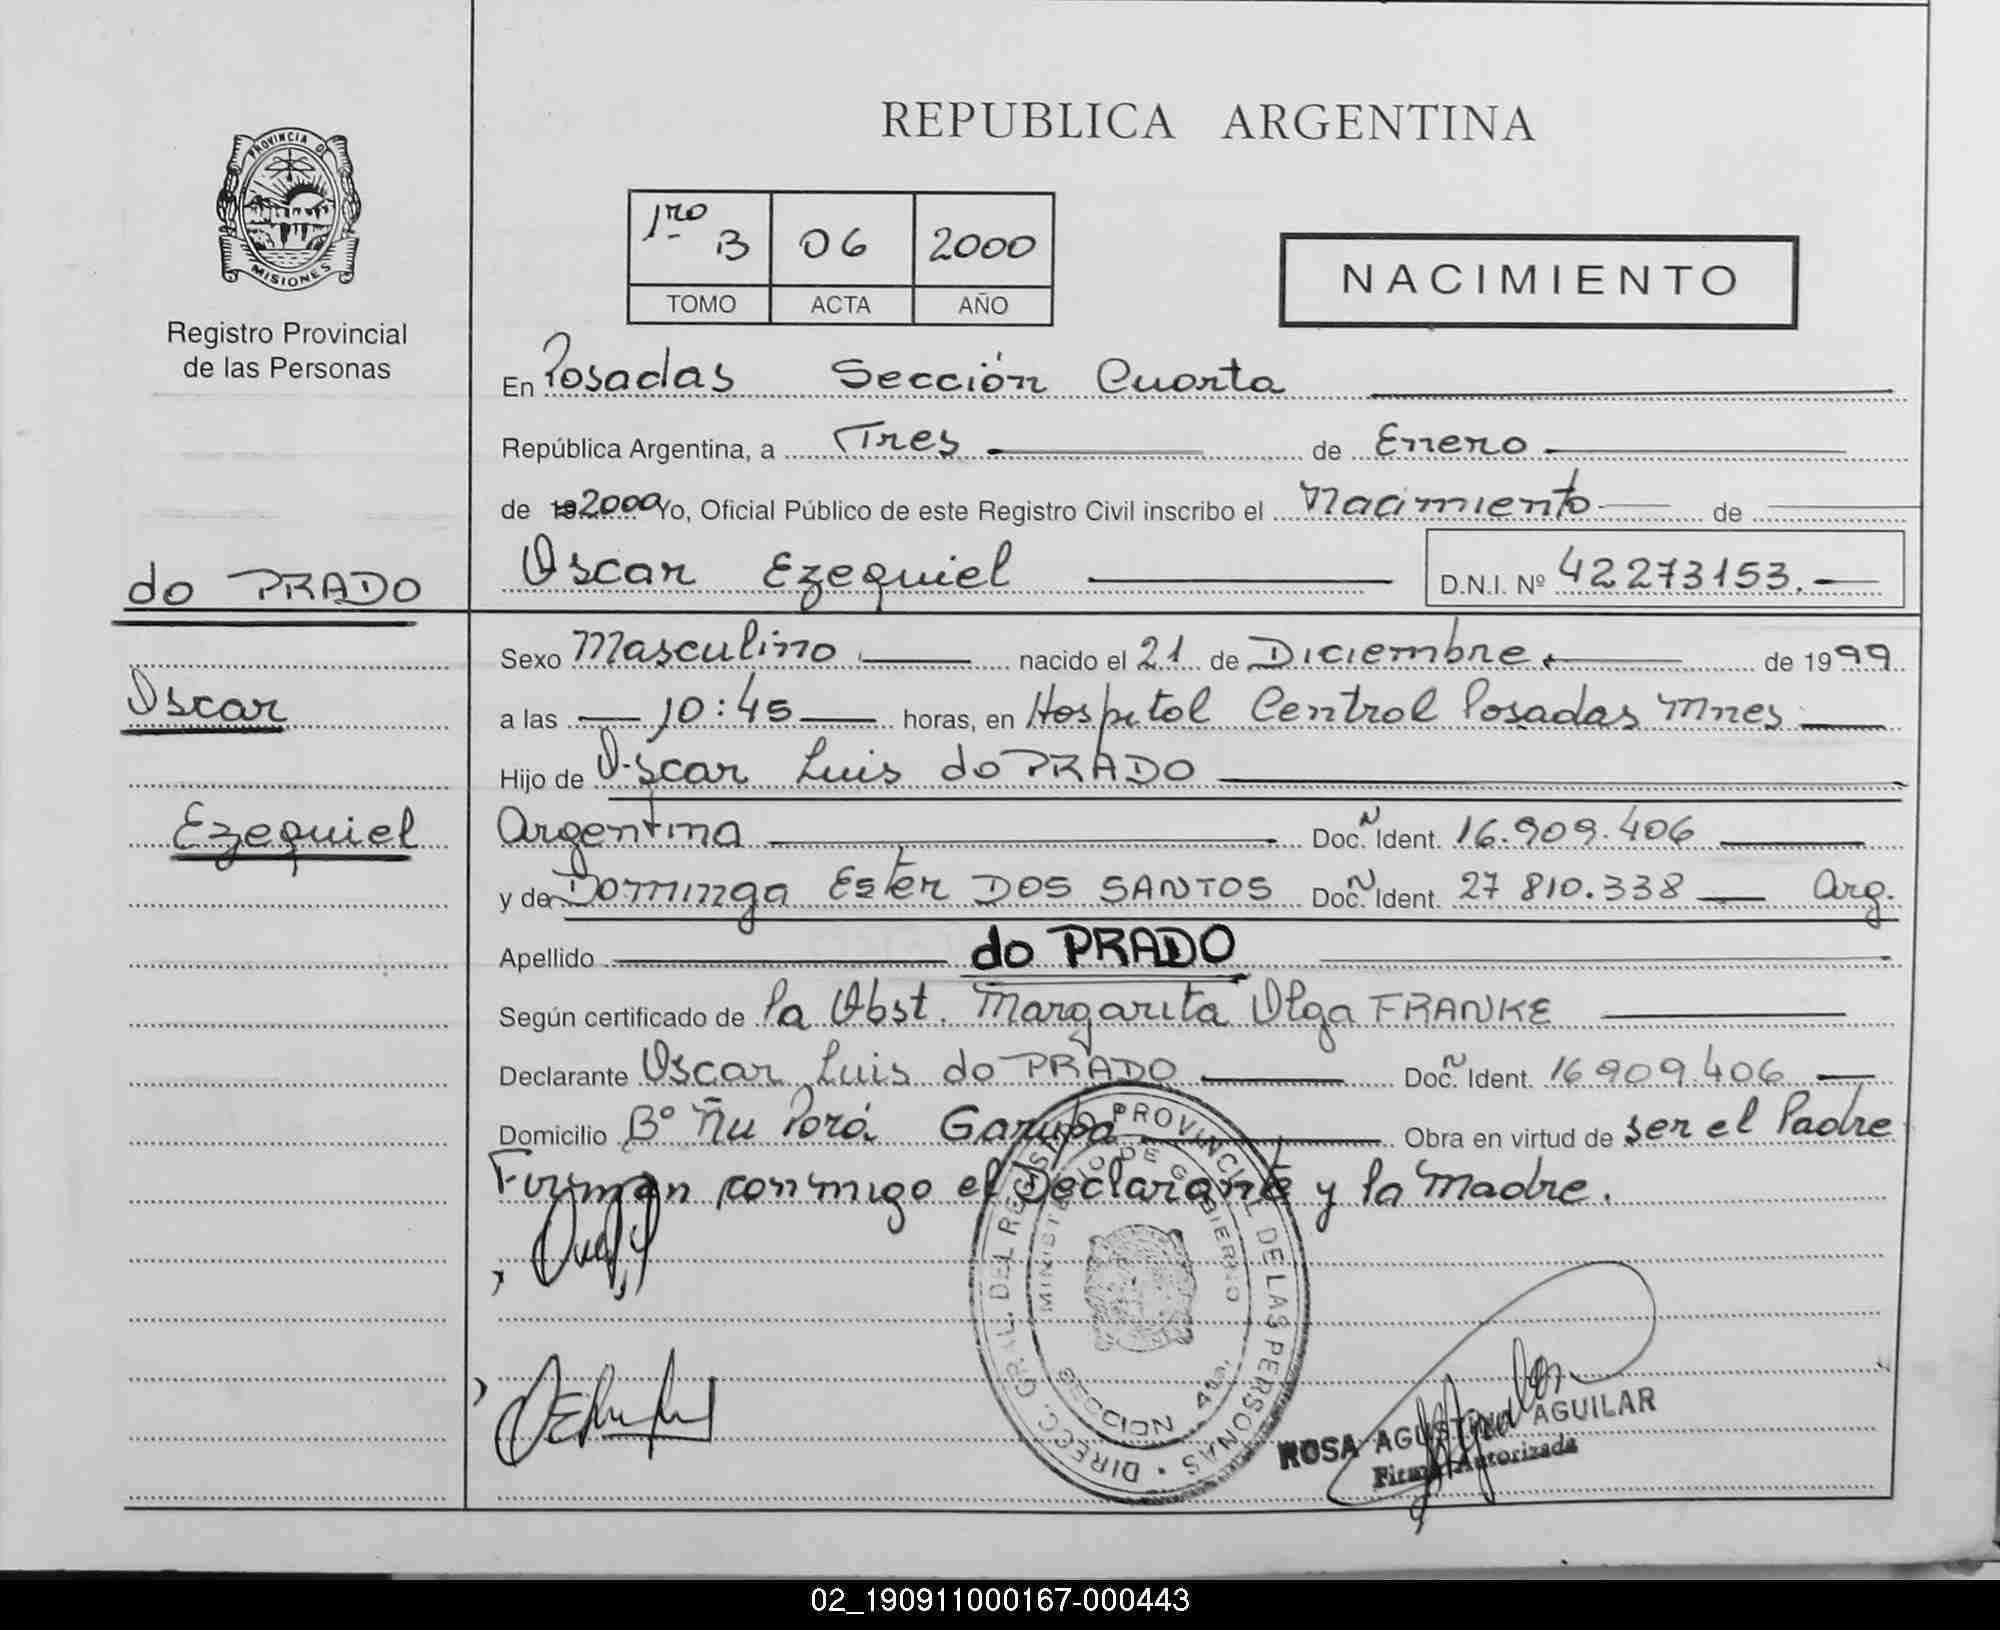 REPUBLICA ARGENTINA
PROVINCIA DE
MISIONES
Registro Provincial
de las Personas
1ro B 06 2000
TOMO ACTA AÑO
NACIMIENTO
En Posadas Sección Cuarta
República Argentina, a Tres de Enero
de 19 2000 Yo, Oficial Público de este Registro Civil inscribo el Nacimiento de
Oscar Ezequiel D.N.I. Nº 42273153.
do PRADO
Oscar
Ezequiel
Sexo Masculino nacido el 21 de Diciembre de 1999
a las 10:45 horas, en Hospital Central Posadas Mnes
Hijo de Oscar Luis do PRADO
Argentina Doc.N Ident. 16.909.406
y de Dominga Ester DOS SANTOS Doc.N Ident. 27 810.338 Arg.
Apellido do PRADO
Según certificado de la Obst. Margarita Olga FRANKE
Declarante Oscar Luis do PRADO Doc.N Ident. 16909.406
Domicilio Bº Ñu Porá Garupa Obra en virtud de ser el Padre
Firman conmigo el Declarante y la Madre.
DIRECC. GRAL. DEL REGISTRO PROVINCIAL DE LAS PERSONAS
MINISTERIO DE GOBIERNO
SECCION 4ta.
ROSA AGUSTINA AGUILAR
Firma Autorizada
02_190911000167-000443